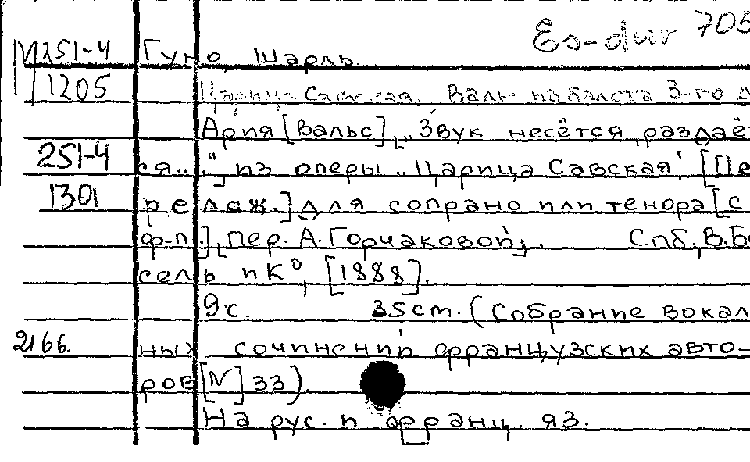 Es-dur 705
251-4 Гуно, Шарль.
1205 Царица Савская. Вальс из балета 3-го д
Ария [Вальс] „Звук несётся, раздаё
251-4 ся...", из оперы „Царица Савская". [Пе
1301 релож.] для сопрано или тенора [с
ф-п.], пер. А. Горчаковой. Спб, В. Бе
сель и К°, [1888].
9 с. 35 cm. (Собрание вокал
2166. ных сочинений французских авто-
ров [N] 33).
На рус. и франц. яз.